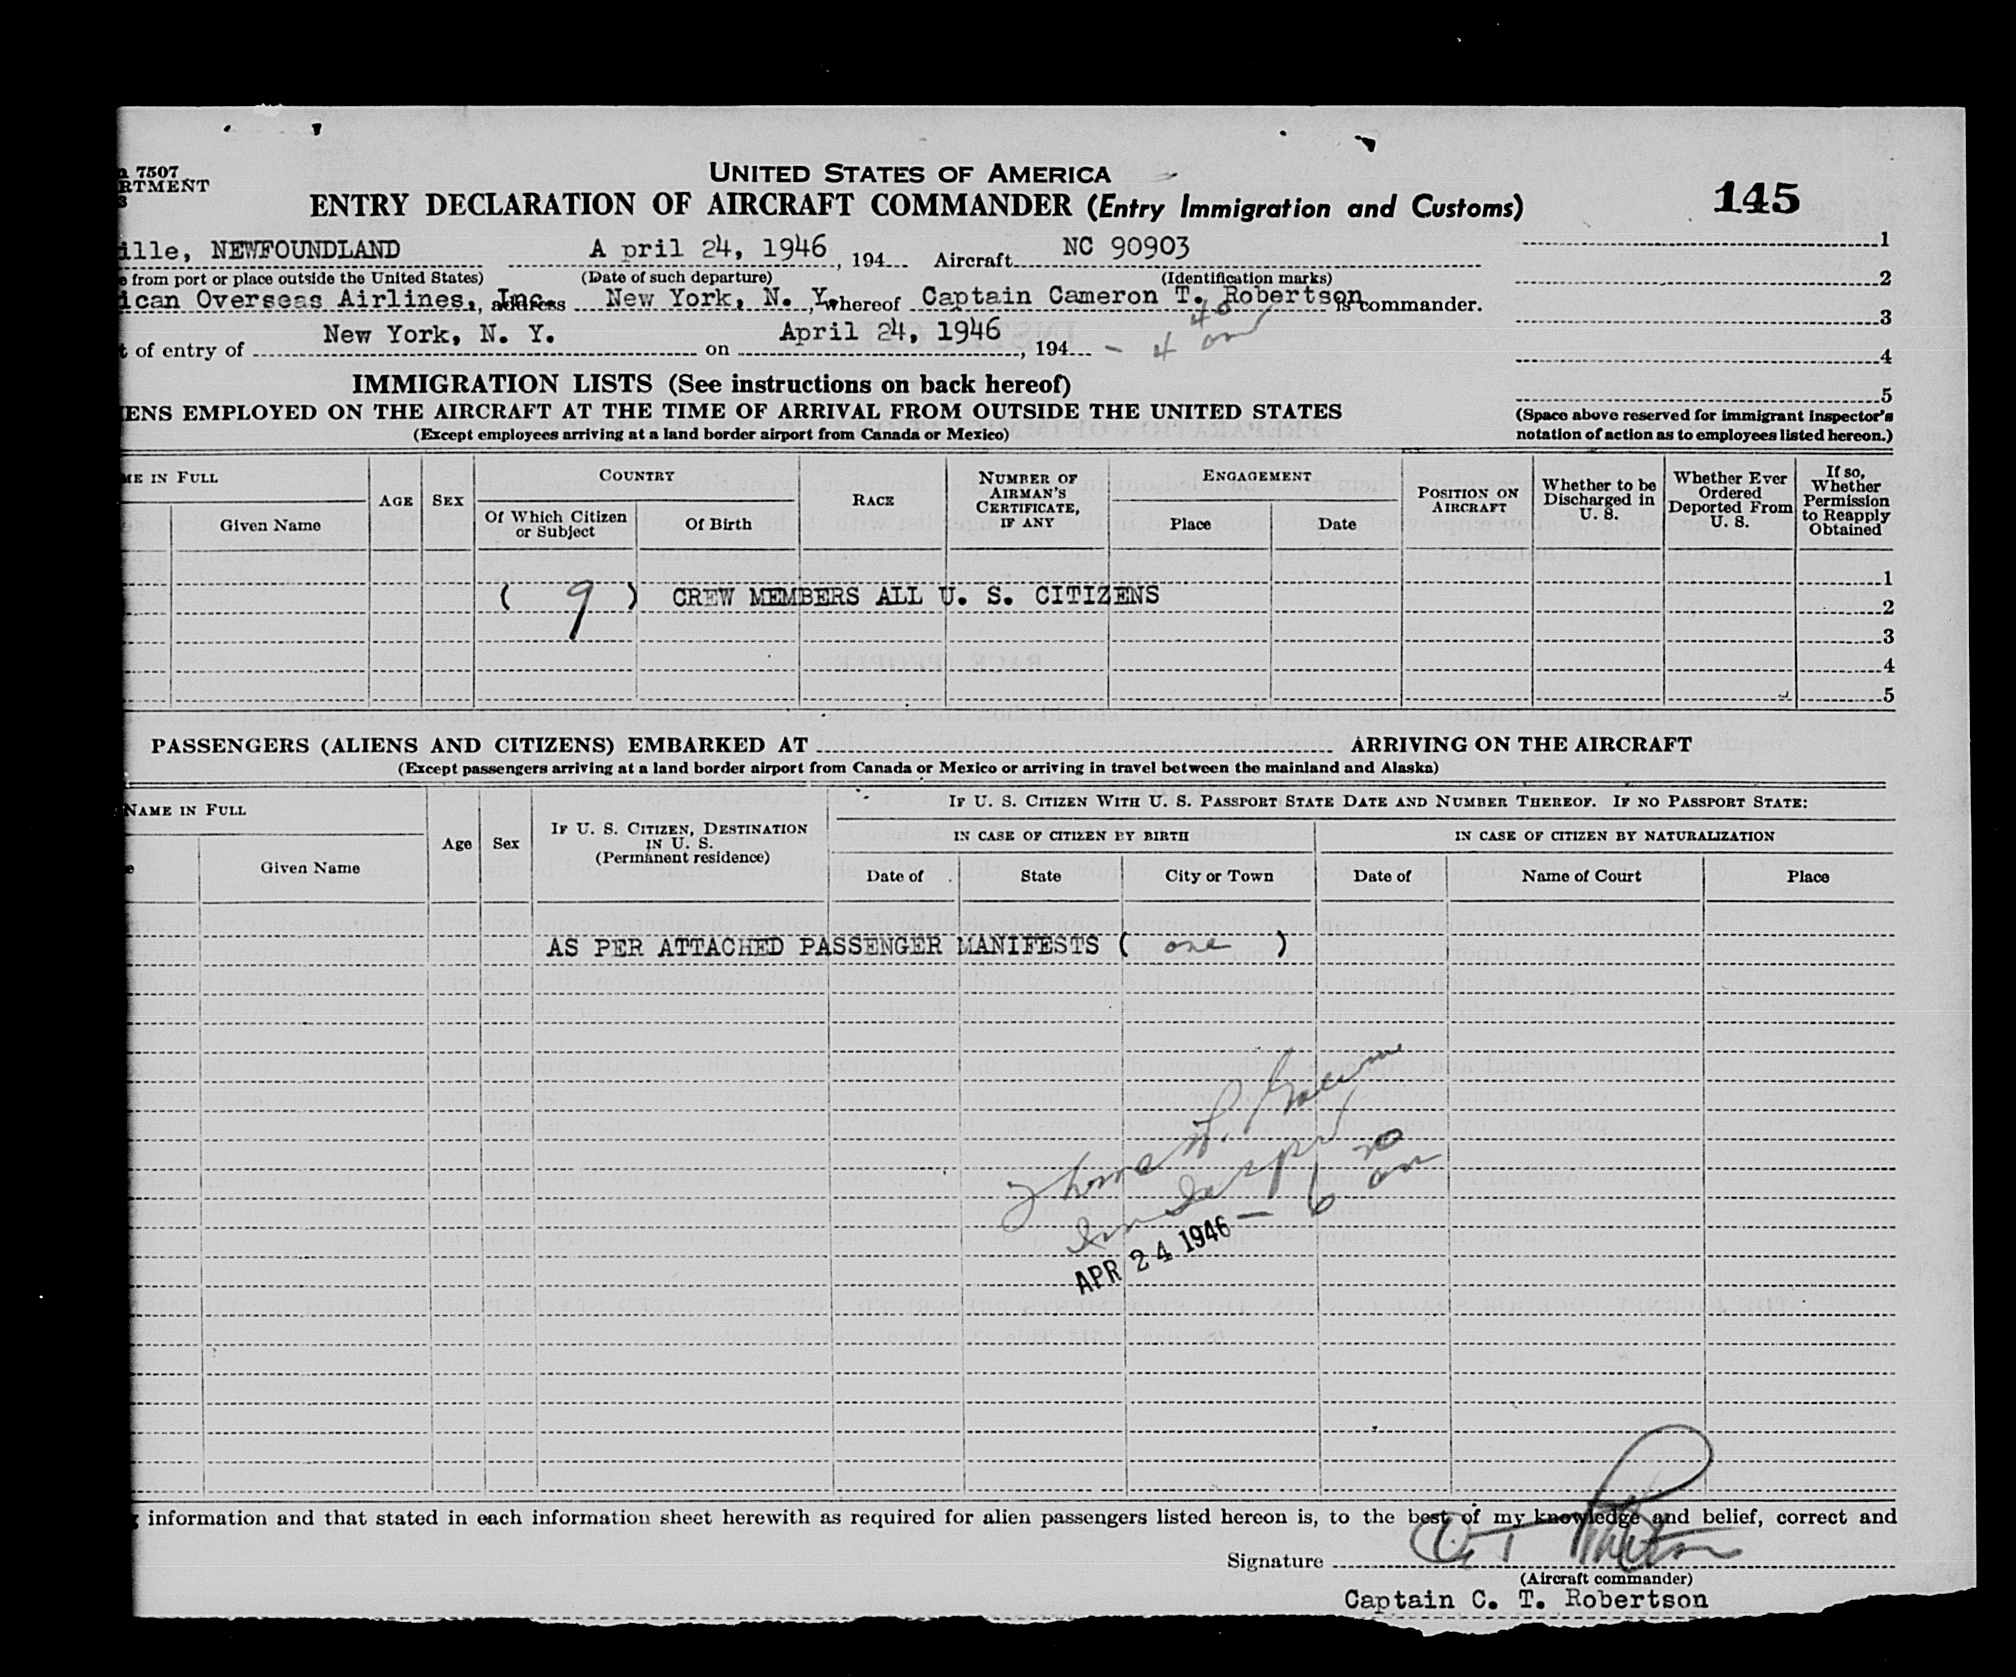 7507
UNITED STATES OF AMERICA
RTMENT
145
ENTRY DECLARATION OF AIRCRAFT COMMANDER (Entry Immigration and Customs)
ille, NEWFOUNDLAND A pril 24, 1946, 194 Aircraft NC 90903 1
from port or place outside the United States) (Date of such departure) (Identification marks) 2
ican Overseas Airlines, Inc., address New York, N. Y., whereof Captain Cameron T. Robertson is commander.
3
of entry of New York, N. Y. on April 24, 1946, 194 - 4 40 am
4
IMMIGRATION LISTS (See instructions on back hereof)
5
ENS EMPLOYED ON THE AIRCRAFT AT THE TIME OF ARRIVAL FROM OUTSIDE THE UNITED STATES
(Space above reserved for immigrant inspector's
(Except employees arriving at a land border airport from Canada or Mexico)
notation of action as to employees listed hereon.)
ME IN FULL
Given Name
AGE
SEX
COUNTRY
Of Which Citizen or Subject
Of Birth
RACE
NUMBER OF AIRMAN'S CERTIFICATE, IF ANY
ENGAGEMENT
Place
Date
POSITION ON AIRCRAFT
Whether to be Discharged in U. S.
Whether Ever Ordered Deported From U. S.
If so, Whether Permission to Reapply Obtained
1
( 9 ) CREW MEMBERS ALL U. S. CITIZENS
2
3
4
5
PASSENGERS (ALIENS AND CITIZENS) EMBARKED AT ARRIVING ON THE AIRCRAFT
(Except passengers arriving at a land border airport from Canada or Mexico or arriving in travel between the mainland and Alaska)
NAME IN FULL
Given Name
Age
Sex
IF U. S. CITIZEN, DESTINATION IN U. S.
(Permanent residence)
IF U. S. CITIZEN WITH U. S. PASSPORT STATE DATE AND NUMBER THEREOF. IF NO PASSPORT STATE:
IN CASE OF CITIZEN BY BIRTH
IN CASE OF CITIZEN BY NATURALIZATION
Date of
State
City or Town
Date of
Name of Court
Place
AS PER ATTACHED PASSENGER MANIFESTS ( one )
6 20 am
APR 24 1946 —
information and that stated in each information sheet herewith as required for alien passengers listed hereon is, to the best of my knowledge and belief, correct and
Signature C. T. Robertson
(Aircraft commander)
Captain C. T. Robertson